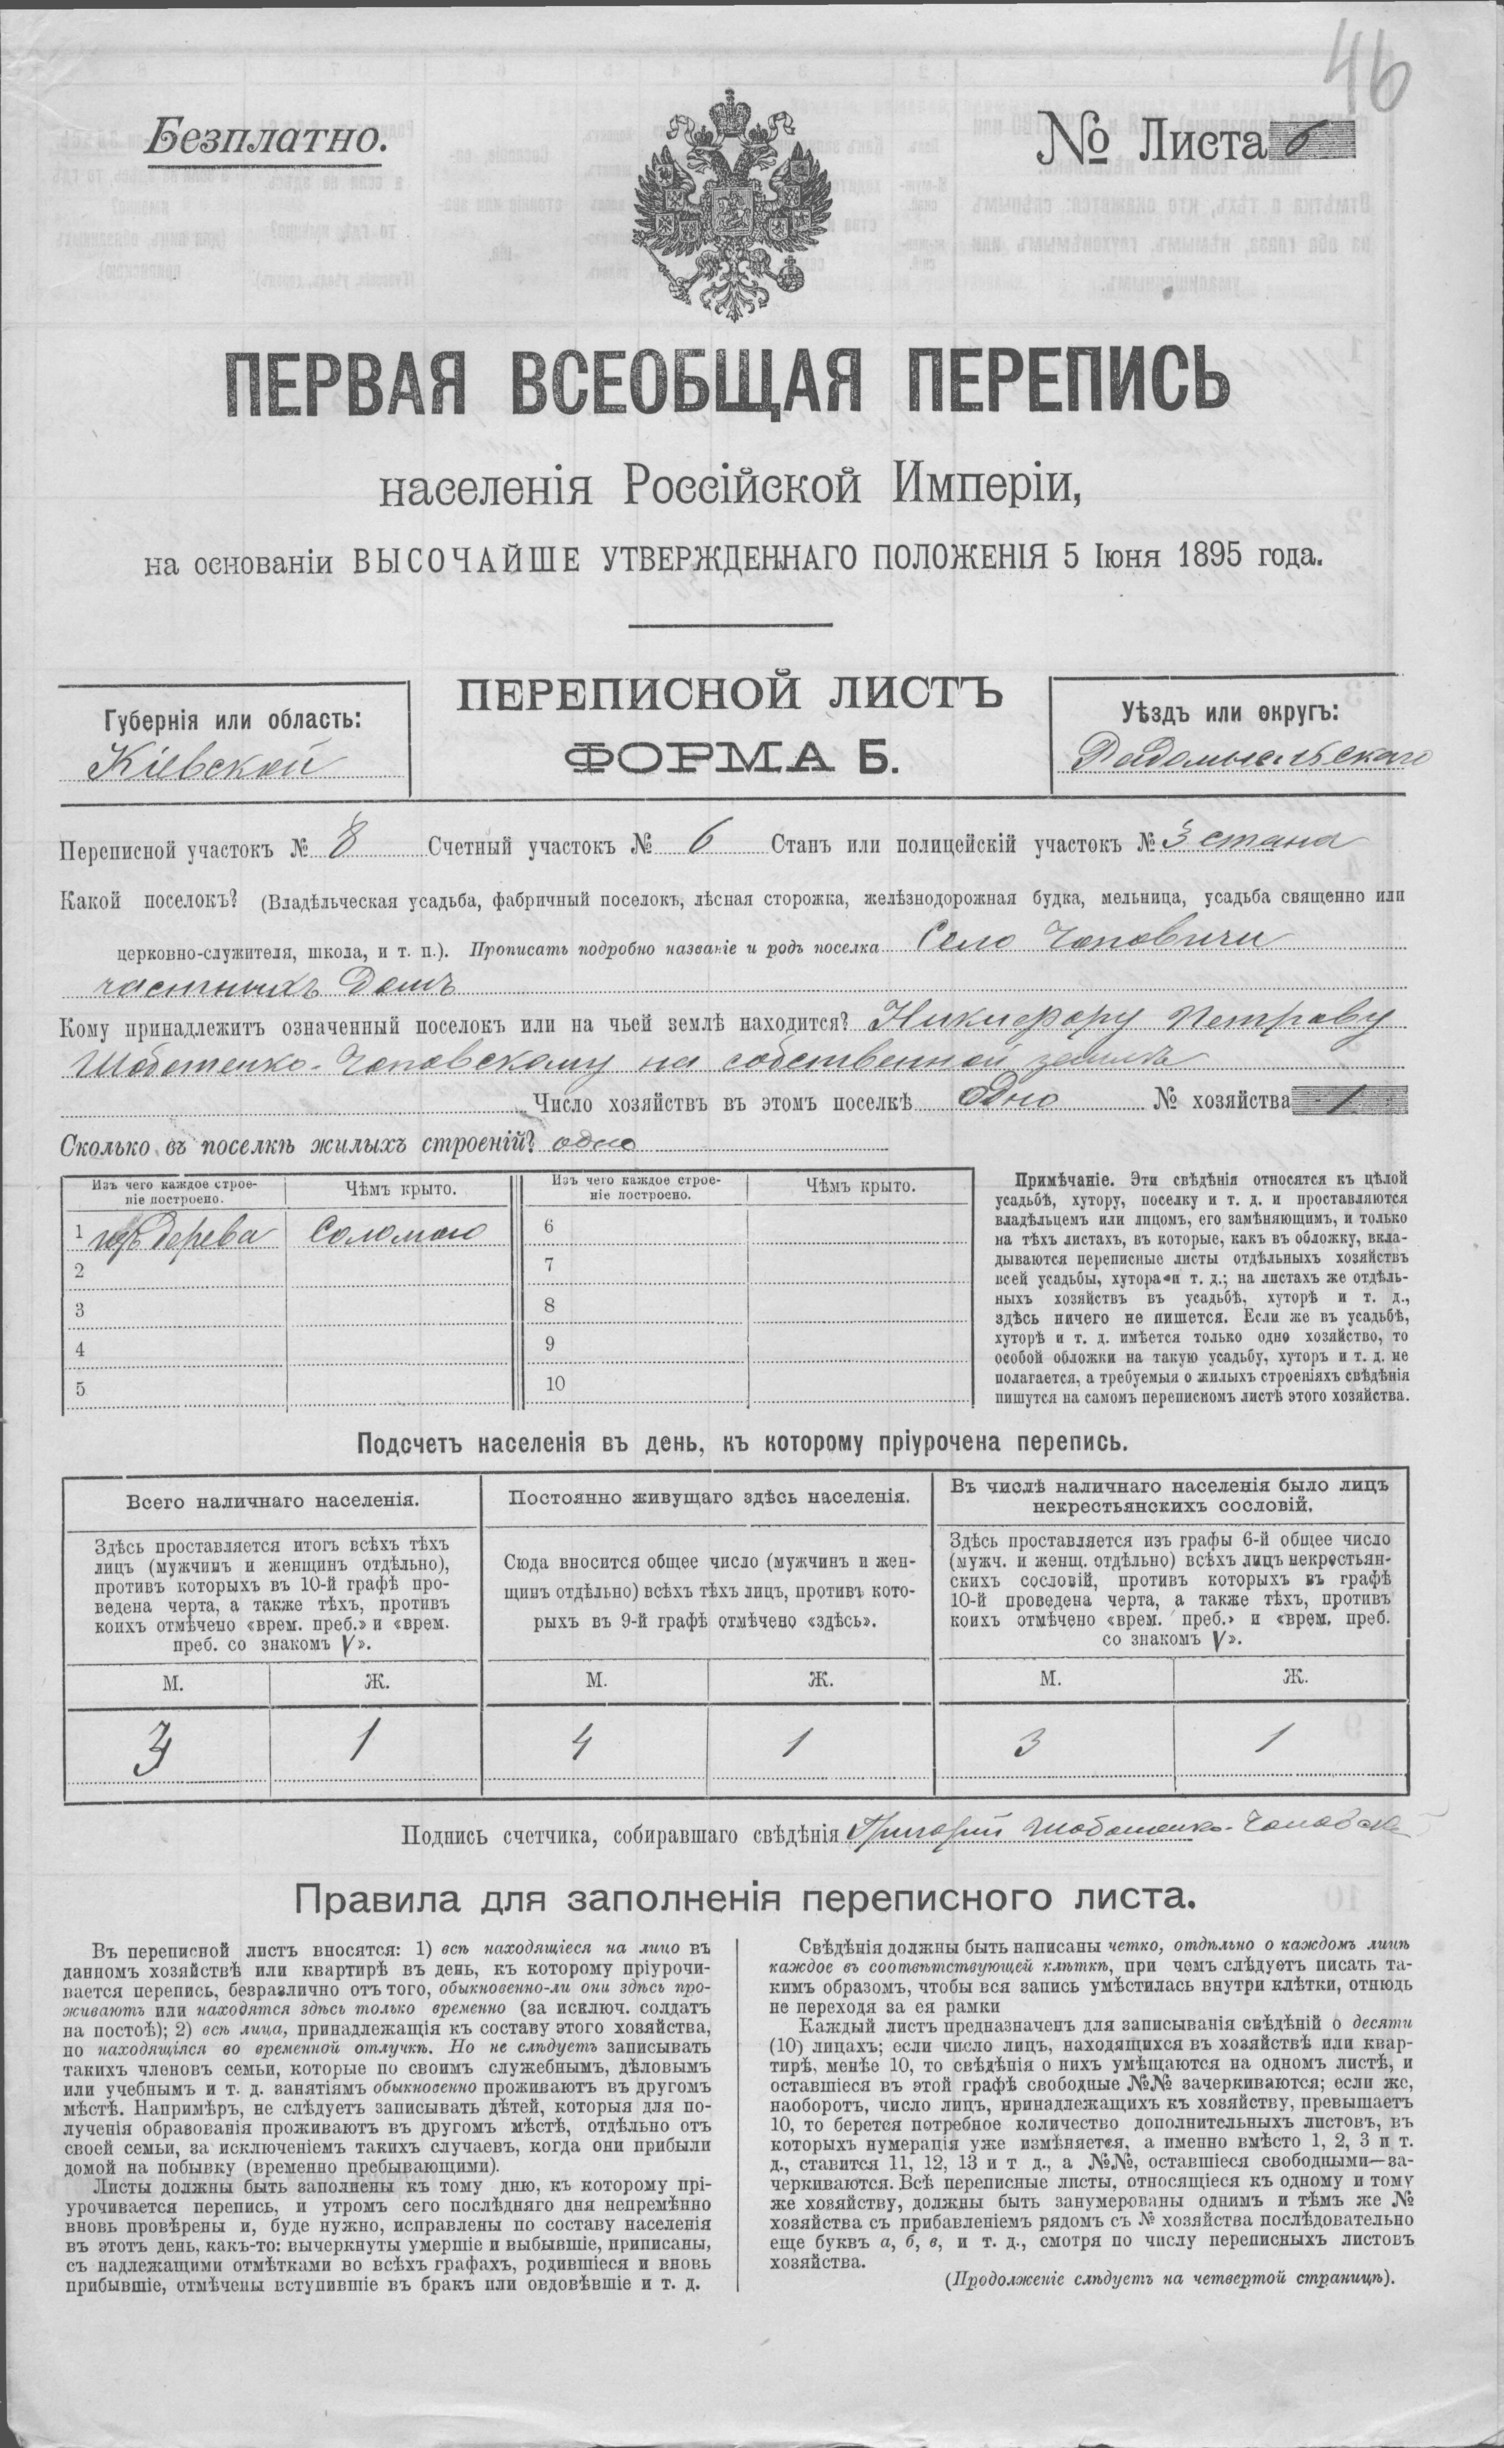 46
Безплатно.
№ Листа 6
ПЕРВАЯ ВСЕОБЩАЯ ПЕРЕПИСЬ
населенія Россійской Имперіи,
на основаніи ВЫСОЧАЙШЕ УТВЕРЖДЕННАГО ПОЛОЖЕНІЯ 5 Іюня 1895 года.
Губернія или область:
Кіевской
ПЕРЕПИСНОЙ ЛИСТЪ
ФОРМА Б.
Уѣздъ или округъ:
Радомысльскаго
Переписной участокъ № 8 Счетный участокъ № 6 Станъ или полицейскій участокъ № 3 стана
Какой поселокъ? (Владѣльческая усадьба, фабричный поселокъ, лѣсная сторожка, желѣзнодорожная будка, мельница, усадьба священно или
церковно-служителя, школа, и т. п.). Прописать подробно названіе и родъ поселка Село Чоповичи
частныхъ Домъ
Кому принадлежитъ означенный поселокъ или на чьей землѣ находится? Никифору Петрову
Шоботенко-Чоповскому на собственной землѣ
Число хозяйствъ въ этомъ поселкѣ Одно № хозяйства 1
Сколько въ поселкѣ жилыхъ строеній? одно
Изъ чего каждое строе-
ніе построено.
Чѣмъ крыто.
Изъ чего каждое строе-
ніе построено.
Чѣмъ крыто.
1 дерева Соломою 6
2 7
3 8
4 9
5 10
Примѣчаніе. Эти свѣдѣнія относятся къ цѣлой
усадьбѣ, хутору, поселку и т. д. и проставляются
владѣльцемъ или лицомъ, его замѣняющимъ, и только
на тѣхъ листахъ, въ которые, какъ въ обложку, вкла-
дываются переписные листы отдѣльныхъ хозяйствъ
всей усадьбы, хутора и т. д.; на листахъ же отдѣль-
ныхъ хозяйствъ въ усадьбѣ, хуторѣ и т. д.,
здѣсь ничего не пишется. Если же въ усадьбѣ,
хуторѣ и т. д. имѣется только одно хозяйство, то
особой обложки на такую усадьбу, хуторъ и т. д. не
полагается, а требуемыя о жилыхъ строеніяхъ свѣдѣнія
пишутся на самомъ переписномъ листѣ этого хозяйства.
Подсчетъ населенія въ день, къ которому пріурочена перепись.
Всего наличнаго населенія.
Здѣсь проставляется итогъ всѣхъ тѣхъ
лицъ (мужчинъ и женщинъ отдѣльно),
противъ которыхъ въ 10-й графѣ про-
ведена черта, а также тѣхъ, противъ
коихъ отмѣчено «врем. преб.» и «врем.
преб. со знакомъ V».
М. Ж.
3 1
Постоянно живущаго здѣсь населенія.
Сюда вносится общее число (мужчинъ и жен-
щинъ отдѣльно) всѣхъ тѣхъ лицъ, противъ кото-
рыхъ въ 9-й графѣ отмѣчено «здѣсь».
М. Ж.
4 1
Въ числѣ наличнаго населенія было лицъ
некрестьянскихъ сословій.
Здѣсь проставляется изъ графы 6-й общее число
(мужч. и женщ. отдѣльно) всѣхъ лицъ некрестьян-
скихъ сословій, противъ которыхъ въ графѣ
10-й проведена черта, а также тѣхъ, противъ
коихъ отмѣчено «врем. преб.» и «врем. преб.
со знакомъ V».
М. Ж.
3 1
Подпись счетчика, собиравшаго свѣдѣнія Григорий Шоботенко-Чоповск
Правила для заполненія переписного листа.
Въ переписной листъ вносятся: 1) всѣ находящіеся на лицо въ
данномъ хозяйствѣ или квартирѣ въ день, къ которому пріурочи-
вается перепись, безразлично отъ того, обыкновенно-ли они здѣсь про-
живаютъ или находятся здѣсь только временно (за исключ. солдатъ
на постоѣ); 2) всѣ лица, принадлежащія къ составу этого хозяйства,
но находящіяся во временной отлучкѣ. Но не слѣдуетъ записывать
такихъ членовъ семьи, которые по своимъ служебнымъ, дѣловымъ
или учебнымъ и т. д. занятіямъ обыкновенно проживаютъ въ другомъ
мѣстѣ. Напримѣръ, не слѣдуетъ записывать дѣтей, которыя для по-
лученія образованія проживаютъ въ другомъ мѣстѣ, отдѣльно отъ
своей семьи, за исключеніемъ такихъ случаевъ, когда они прибыли
домой на побывку (временно пребывающими).
Листы должны быть заполнены къ тому дню, къ которому прі-
урочивается перепись, и утромъ сего послѣдняго дня непремѣнно
вновь провѣрены и, буде нужно, исправлены по составу населенія
въ этотъ день, какъ-то: вычеркнуты умершіе и выбывшіе, приписаны,
съ надлежащими отмѣтками во всѣхъ графахъ, родившіеся и вновь
прибывшіе, отмѣчены вступившіе въ бракъ или овдовѣвшіе и т. д.
Свѣдѣнія должны быть написаны четко, отдѣльно о каждомъ лицѣ
каждое въ соотвѣтствующей клѣткѣ, при чемъ слѣдуетъ писать та-
кимъ образомъ, чтобы вся запись умѣстилась внутри клѣтки, отнюдь
не переходя за ея рамки
Каждый листъ предназначенъ для записыванія свѣдѣній о десяти
(10) лицахъ; если число лицъ, находящихся въ хозяйствѣ или квар-
тирѣ, менѣе 10, то свѣдѣнія о нихъ умѣщаются на одномъ листѣ, и
оставшіеся въ этой графѣ свободные №№ зачеркиваются; если же,
наоборотъ, число лицъ, принадлежащихъ къ хозяйству, превышаетъ
10, то берется потребное количество дополнительныхъ листовъ, въ
которыхъ нумерація уже измѣняется, а именно вмѣсто 1, 2, 3 и т.
д., ставится 11, 12, 13 и т д., а №№, оставшіеся свободными—за-
черкиваются. Всѣ переписные листы, относящіеся къ одному и тому
же хозяйству, должны быть занумерованы однимъ и тѣмъ же №
хозяйства съ прибавленіемъ рядомъ съ № хозяйства послѣдовательно
еще буквъ а, б, в, и т. д., смотря по числу переписныхъ листовъ
хозяйства.
(Продолженіе слѣдуетъ на четвертой страницѣ).